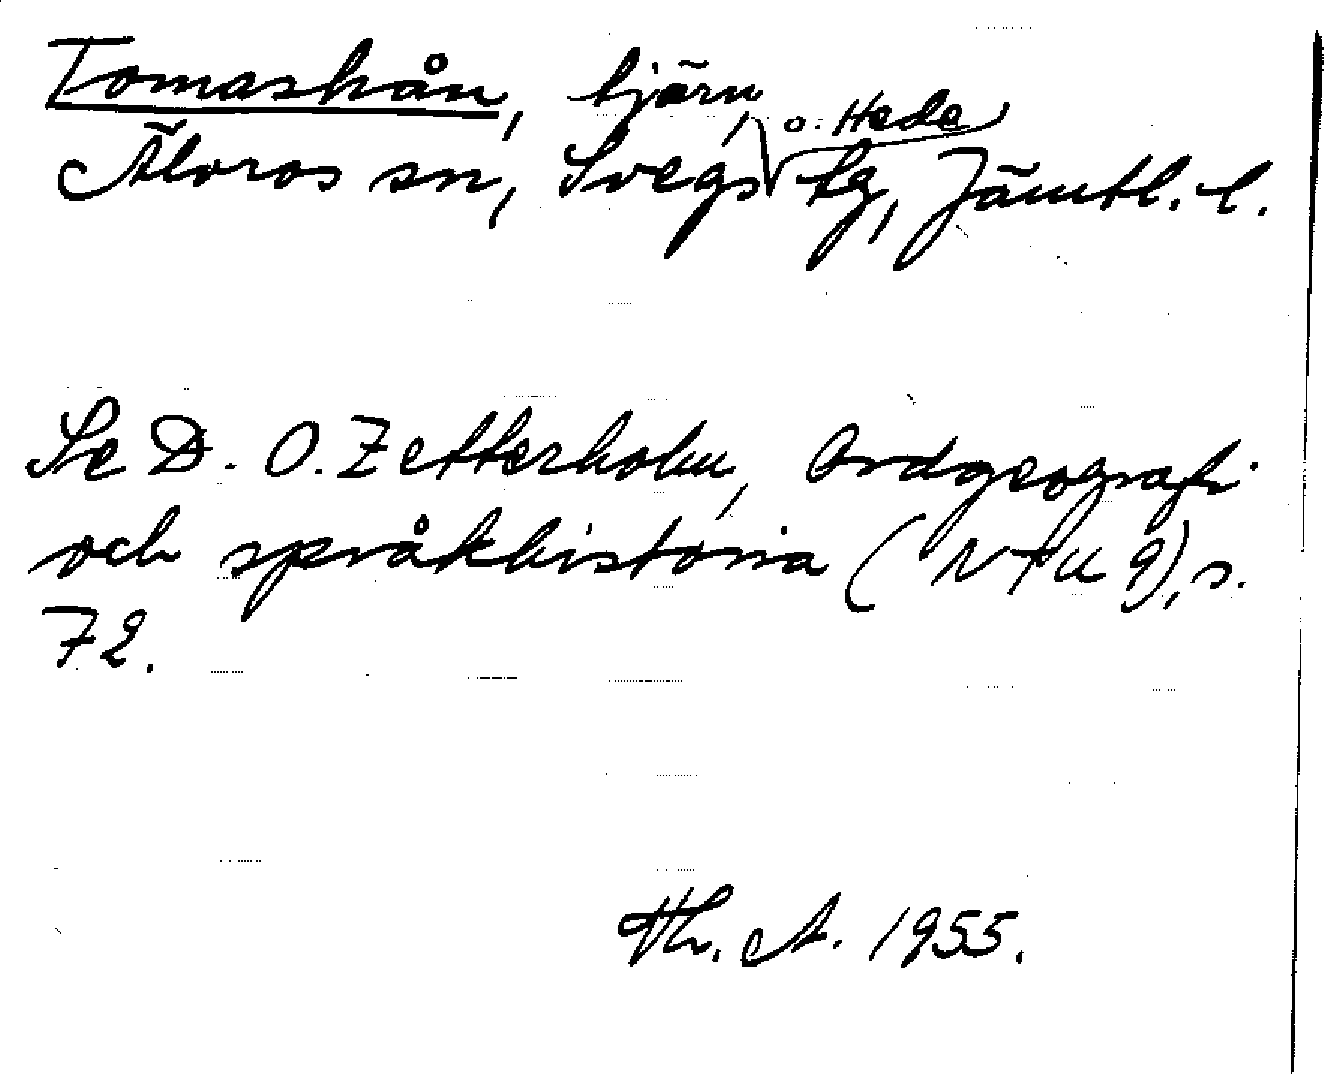 Tomashån, tjärn,
o. Hede
Älvros sn, Svegs tg, Jämtl. l.
Se D. O. Zetterholm, Ordgeografi
och språkhistoria (NTU 9), s.
72.
Th. A. 1955.